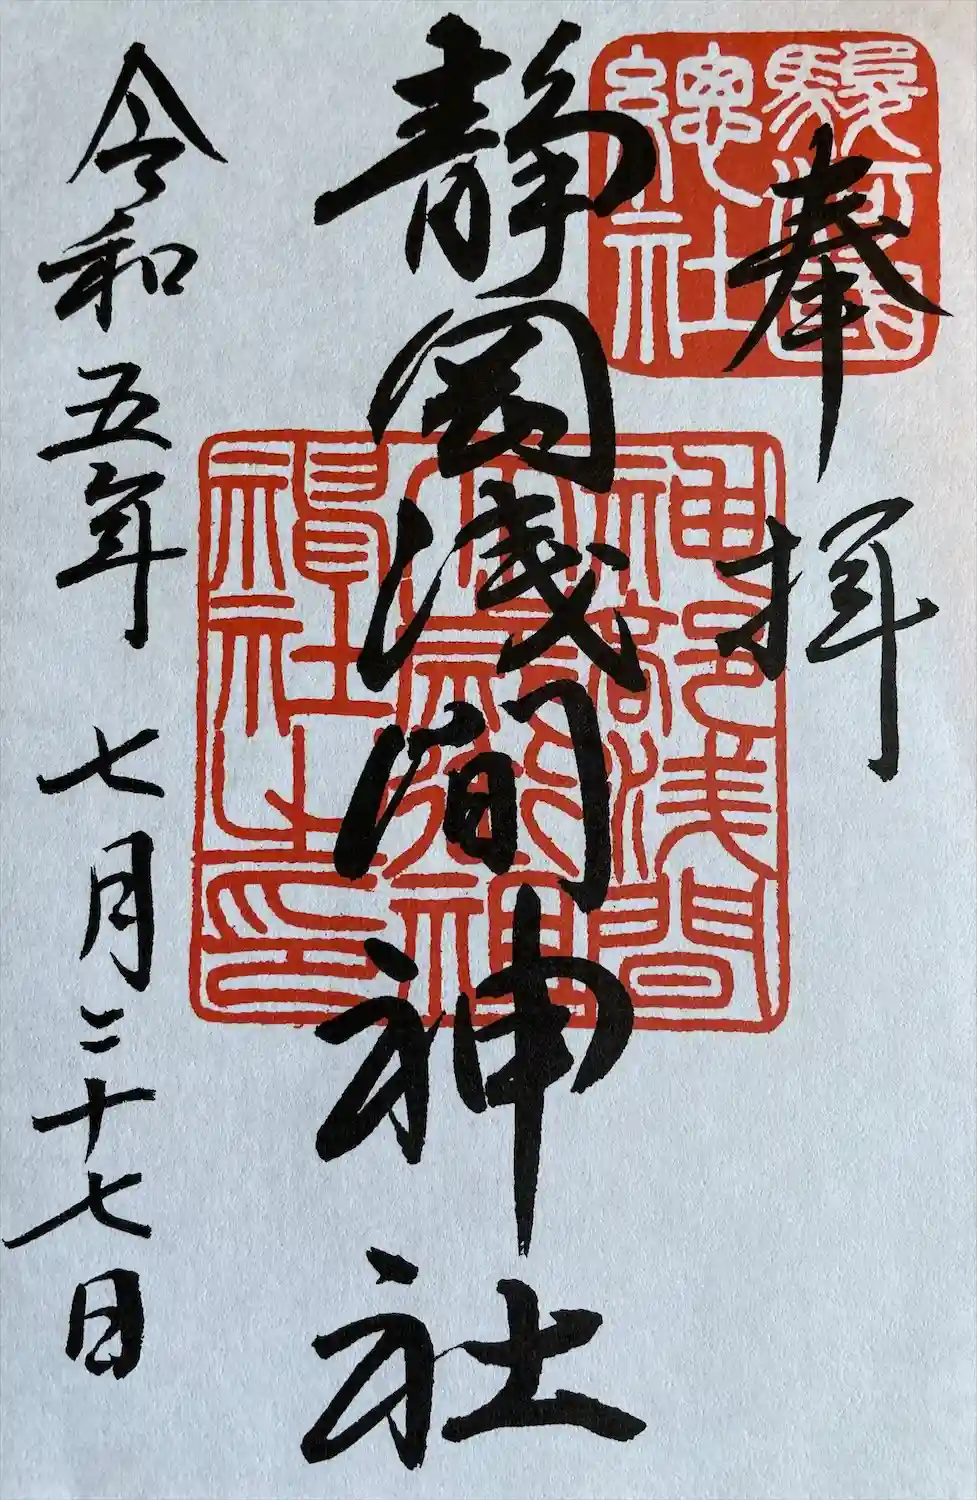 駿河國
總社
奉拝
静岡浅間神社
神部淺間
令和五年七月二十七日